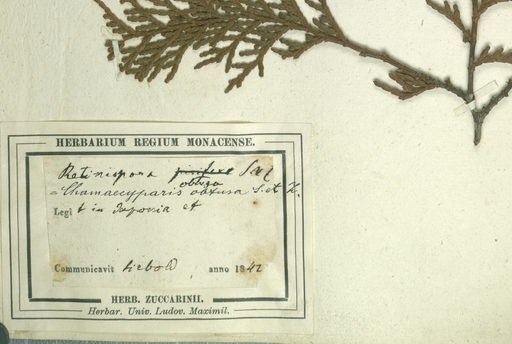 HERBARIUM REGIUM MONACENSE.
Retinispora pisifera S et Z
obtusa
= Chamaecyparis obtusa S. et Z.
Legit in Japonia et
Communicavit Siebold anno 1842
HERB. ZUCCARINII.
Herbar. Univ. Ludov. Maximil.